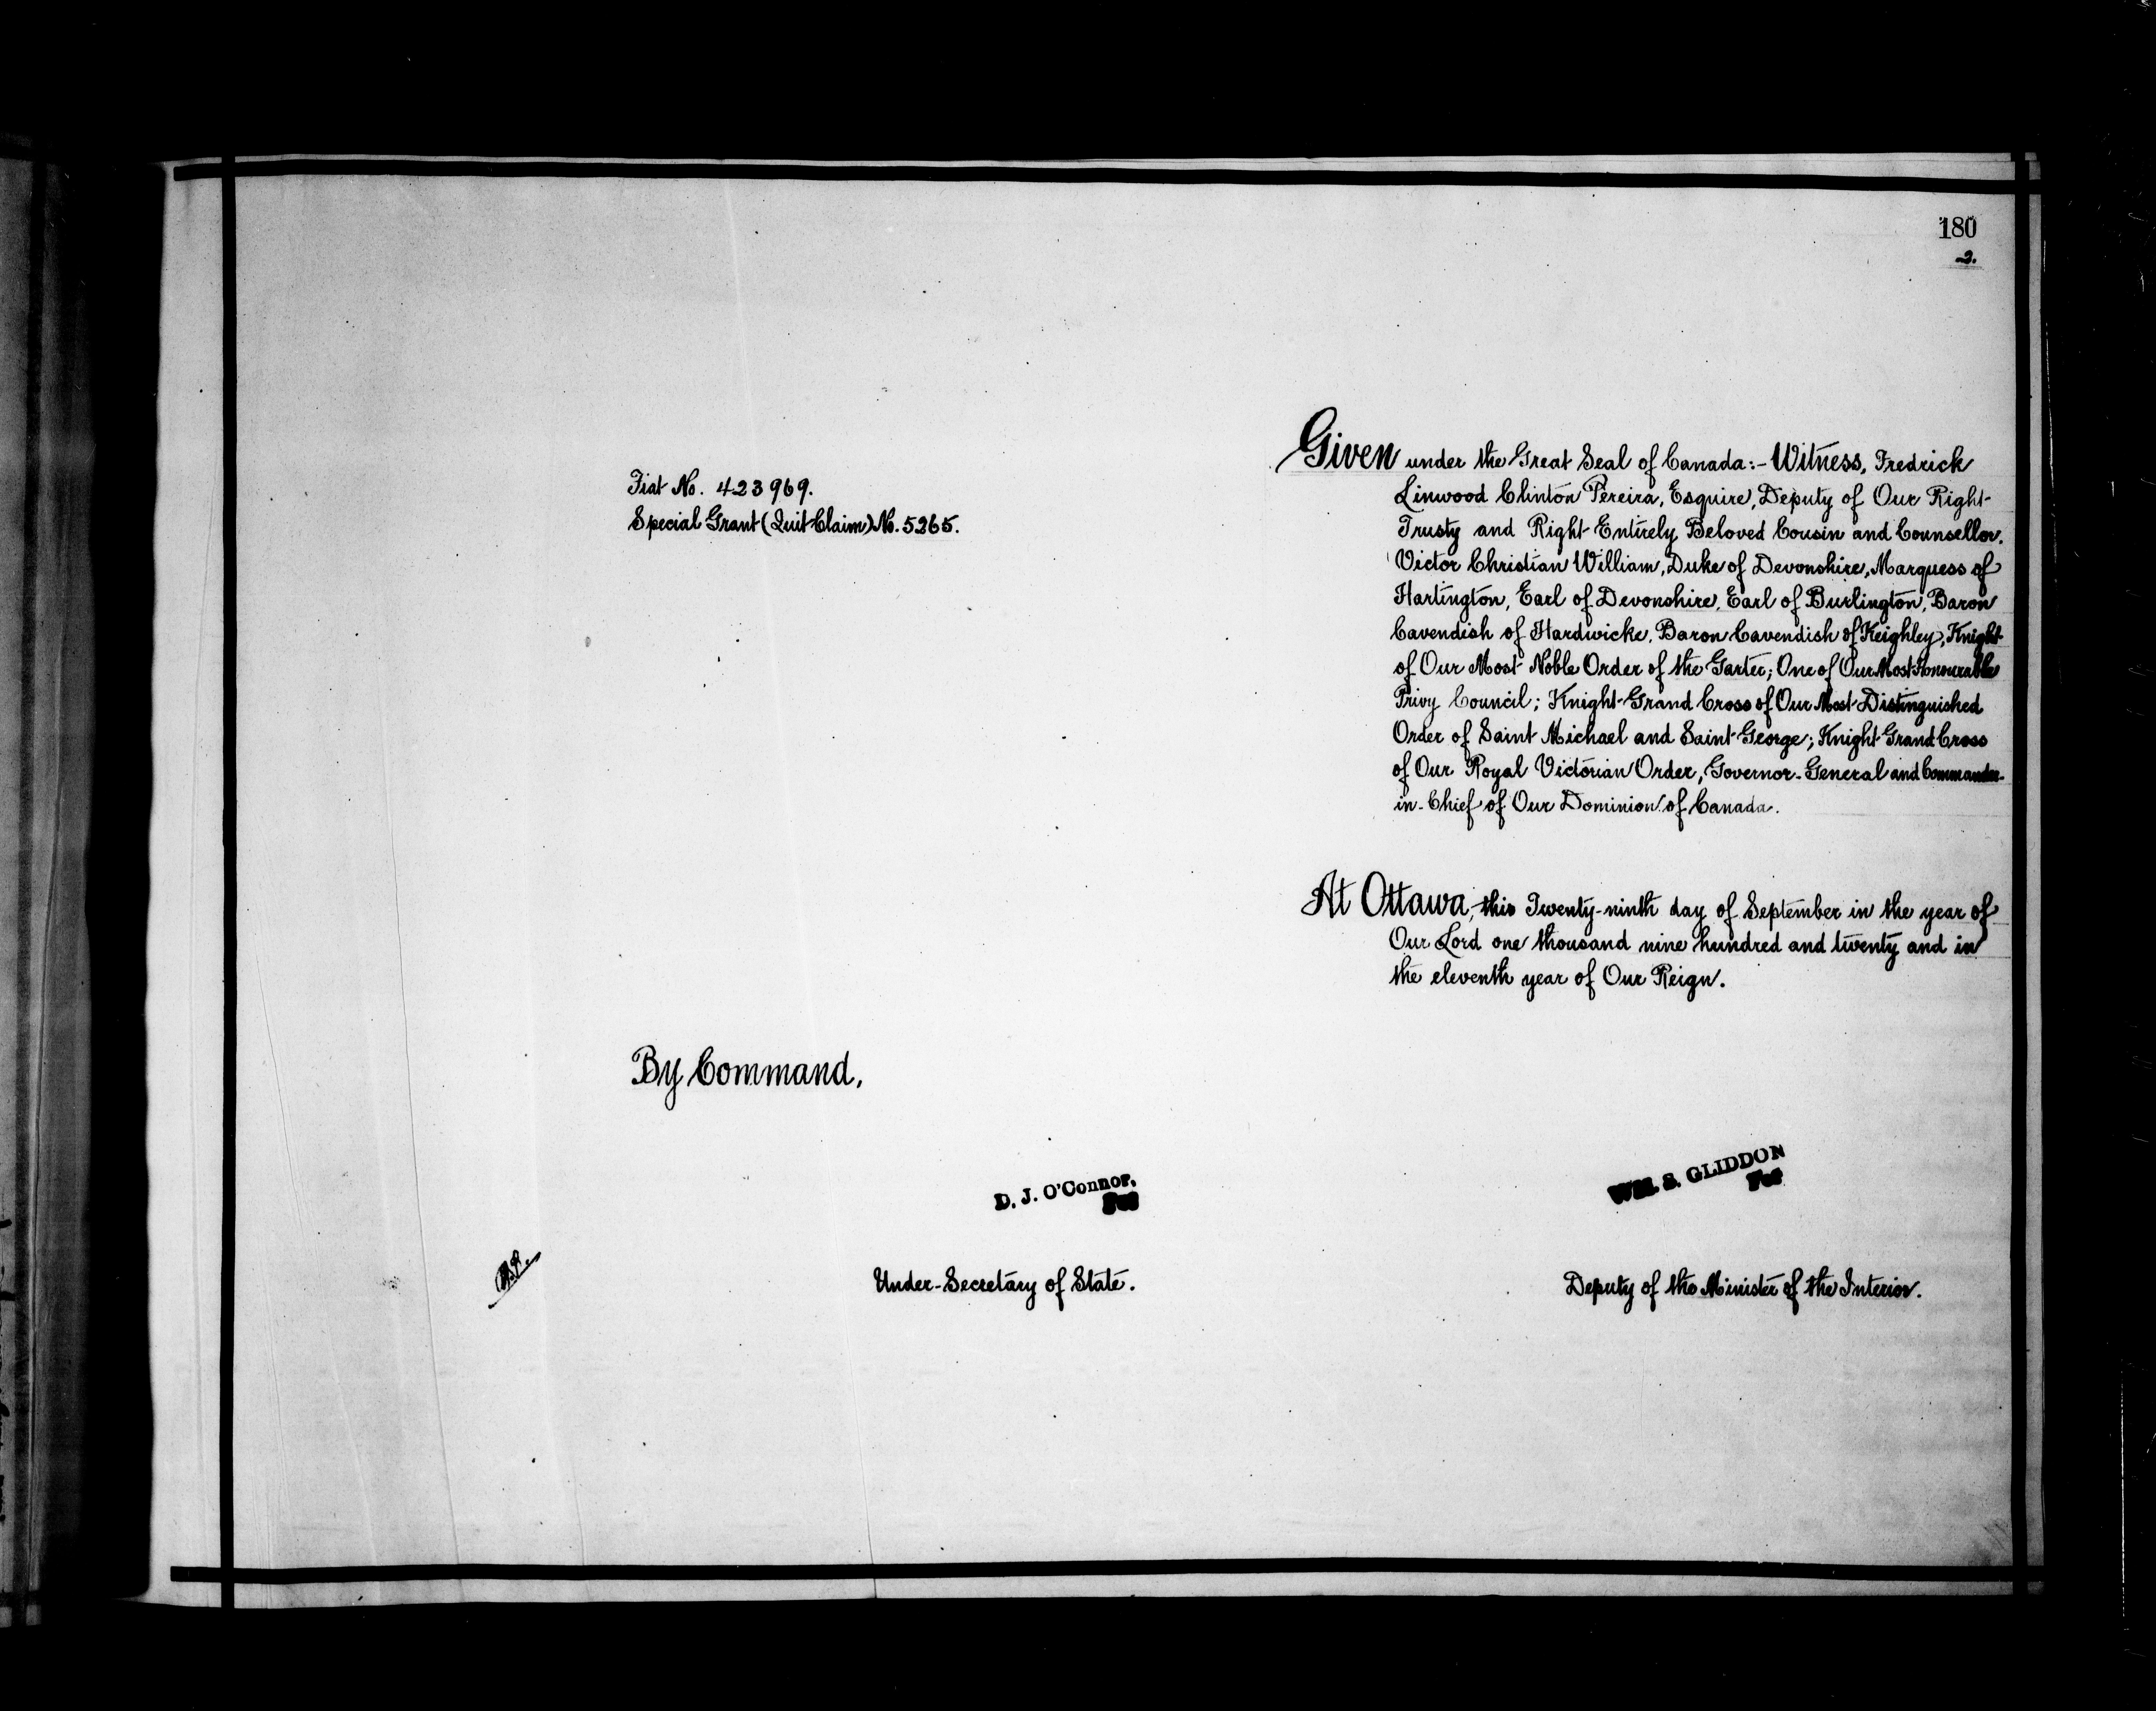 180
2.
Fiat No. 423969.
Special Grant (Quit Claim) No. 5265.
Given under the Great Seal of Canada:- Witness, Fredrick
Linwood Clinton Pereira, Esquire, Deputy of Our Right
Trusty and Right Entirely Beloved Cousin and Counsellor,
Victor Christian William, Duke of Devonshire, Marquess of
Hartington, Earl of Devonshire, Earl of Burlington, Baron
Cavendish of Hardwicke, Baron Cavendish of Keighley, Knight
of Our Most Noble Order of the Garter; One of Our Most Honourable
Privy Council; Knight Grand Cross of Our Most Distinguished
Order of Saint Michael and Saint George; Knight Grand Cross
of Our Royal Victorian Order, Governor-General and Commander-
in-Chief of Our Dominion of Canada.
At Ottawa, this Twenty-ninth day of September in the year of
Our Lord one thousand nine hundred and twenty and in
the eleventh year of Our Reign.
By Command,
D. J. O'Connor,
For
WM. S. GLIDDON
For
Under-Secretary of State.
Deputy of the Minister of the Interior.